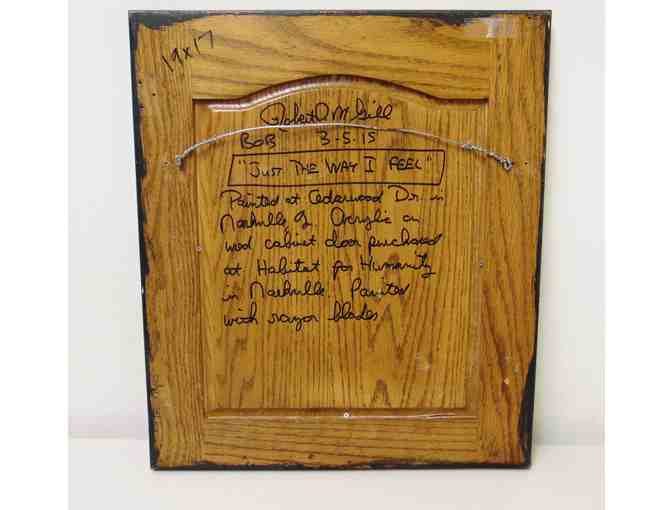 19x17
Robert M Gill
BOB 3-5-15
"JUST THE WAY I FEEL"
Painted at Cedarwood Dr. in
Acrylic on
wood cabinet door purchased
at Habitat for Humanity
in Nashville. Painted
with razor blades